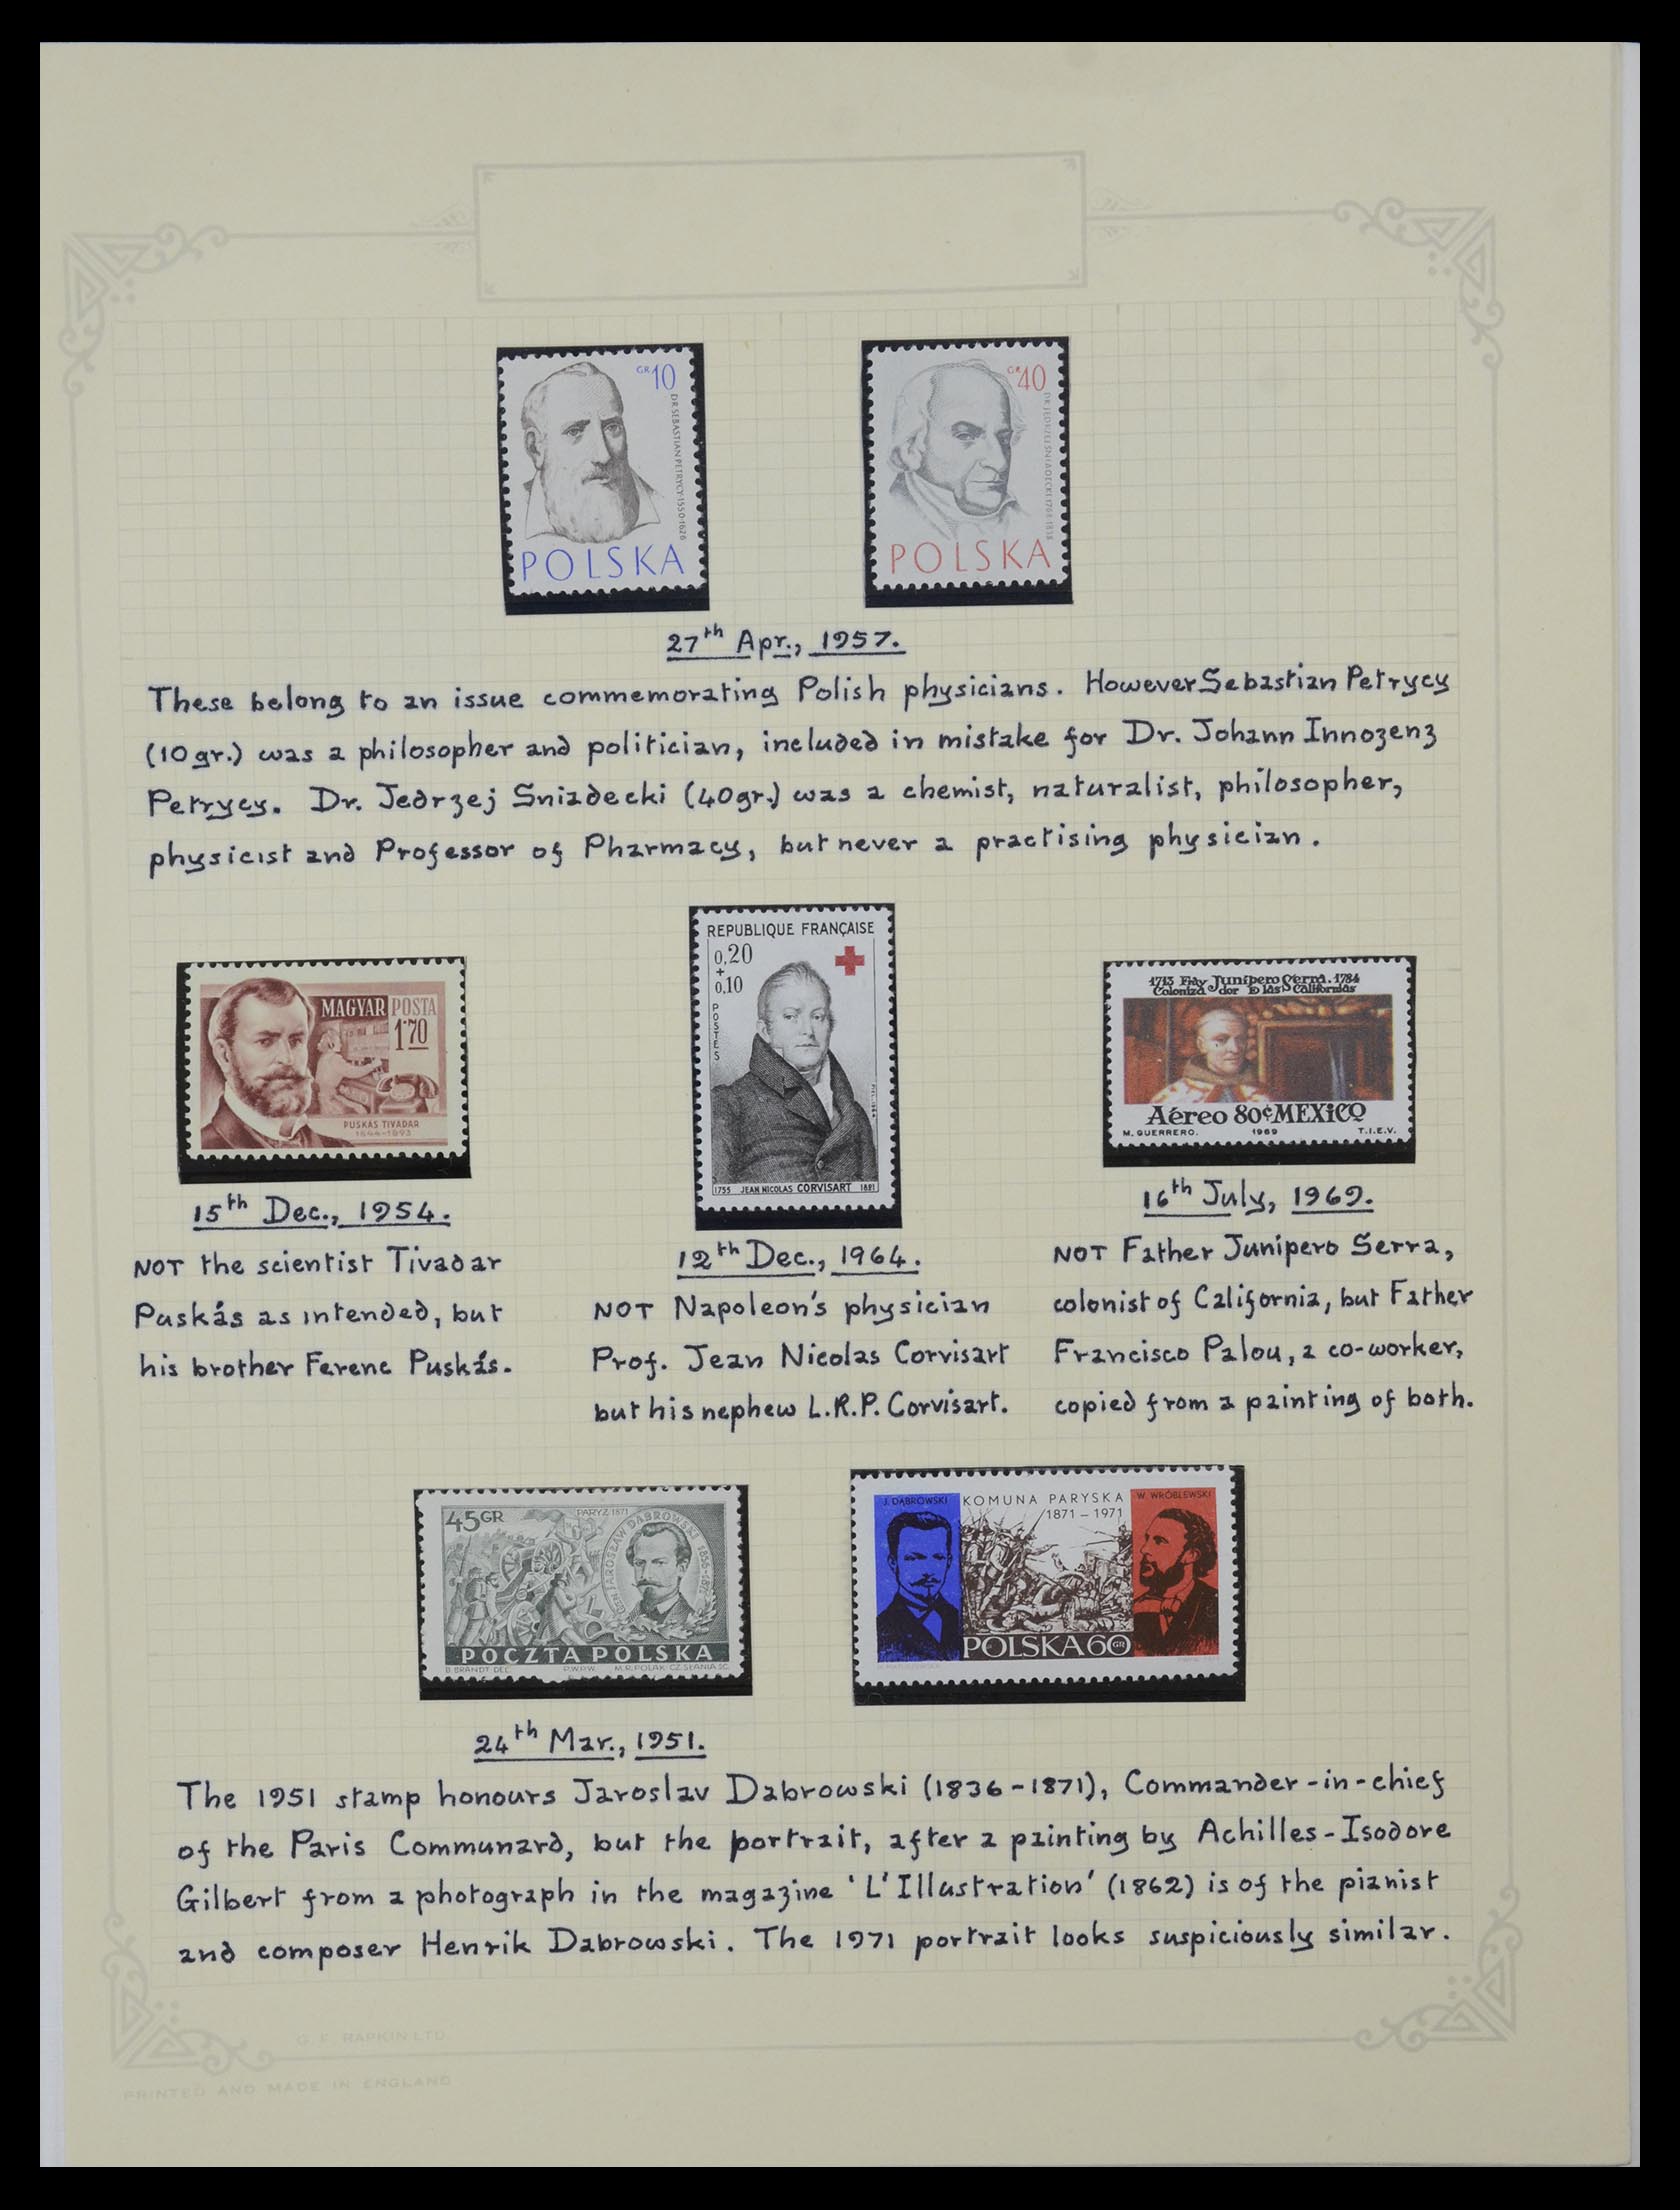 GR 10
DR SEBASTIAN PETRYCY·1550·1626
POLSKA
GR 40
POLSKA
27th Apr., 1957.
These belong to an issue commemorating Polish physicians. However Sebastian Petrycy
(10gr.) was a philosopher and politician, included in mistake for Dr. Johann Innozenz
Petrycy. Dr. Jedrzej Sniadecki (40gr.) was a chemist, naturalist, philosopher,
physicist and Professor of Pharmacy, but never a practising physician.
MAGYAR POSTA
1·70
PUSKÁS TIVADAR
1844-1893
15th Dec., 1954.
NOT the scientist Tivadar
Puskás as intended, but
his brother Ferenc Puskás.
REPUBLIQUE FRANÇAISE
0,20
+
0,10
POSTES
1755 JEAN NICOLAS CORVISART 1821
12th Dec., 1964.
NOT Napoleon's physician
Prof. Jean Nicolas Corvisart
but his nephew L.R.P. Corvisart.
1713 Fray Junípero Serra. 1784
Coloniza dor De las Californias
Aéreo 80¢ MEXiCO
M. GUERRERO. 1969 T.I.E.V.
16th July, 1969.
NOT Father Junípero Serra,
colonist of California, but Father
Francisco Palou, a co-worker,
copied from a painting of both.
45GR
PARYŻ 1871
JAROSŁAW DĄBROWSKI 1836-1871
POCZTA POLSKA
B. BRANDT DEL. P.W.P.W. M.R.POLAK·CZ.SŁANIA SC.
J. DĄBROWSKI
KOMUNA PARYSKA
1871 – 1971
W. WRÓBLEWSKI
POLSKA 60 GR
24th Mar., 1951.
The 1951 stamp honours Jaroslav Dabrowski (1836-1871), Commander-in-chief
of the Paris Communard, but the portrait, after a painting by Achilles-Isodore
Gilbert from a photograph in the magazine 'L'Illustration' (1862) is of the pianist
and composer Henrik Dabrowski. The 1971 portrait looks suspiciously similar.
G. F. RAPKIN LTD.
PRINTED AND MADE IN ENGLAND